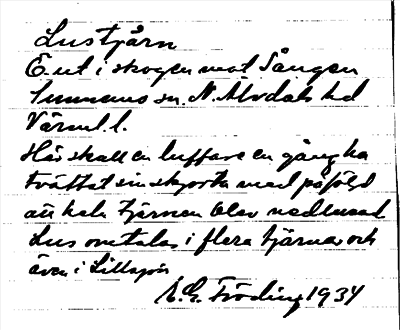 Lustjärn
E. ut i skogen mot Sången
Sunnemo sn. N. Älvdals hd
Värml. l.
Här skall en luffare en gång ha
tvättat sin skjorta med påföljd
att hela tjärnen blev nedlusad
Lus omtalas i flera tjärnar och
även i Lillsjön
E.G. Fröding 1934